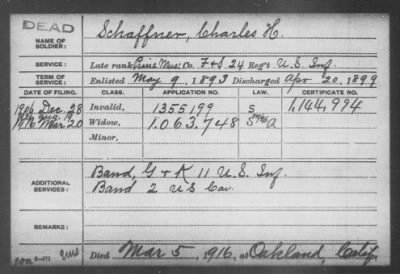 DEAD
NAME OF SOLDIER: Schaffner, Charles H.
SERVICE: Late rank Prin. Mus. Co. F+S 24 Reg't U.S. Inf.
TERM OF SERVICE: Enlisted May 9, 1893 Discharged Apr 20, 1899
DATE OF FILING. CLASS. APPLICATION NO. LAW. CERTIFICATE NO.
1906 Dec. 28 Invalid, 1355199 S 1,144,994
Widow, 1.063.748 S
1916 Mar 20
Minor,
ADDITIONAL SERVICES: Band, G + K 11 U.S. Inf.
Band 2 U S Cav.
REMARKS:
Died Mar 5, 1916, at Oakland, Calif.